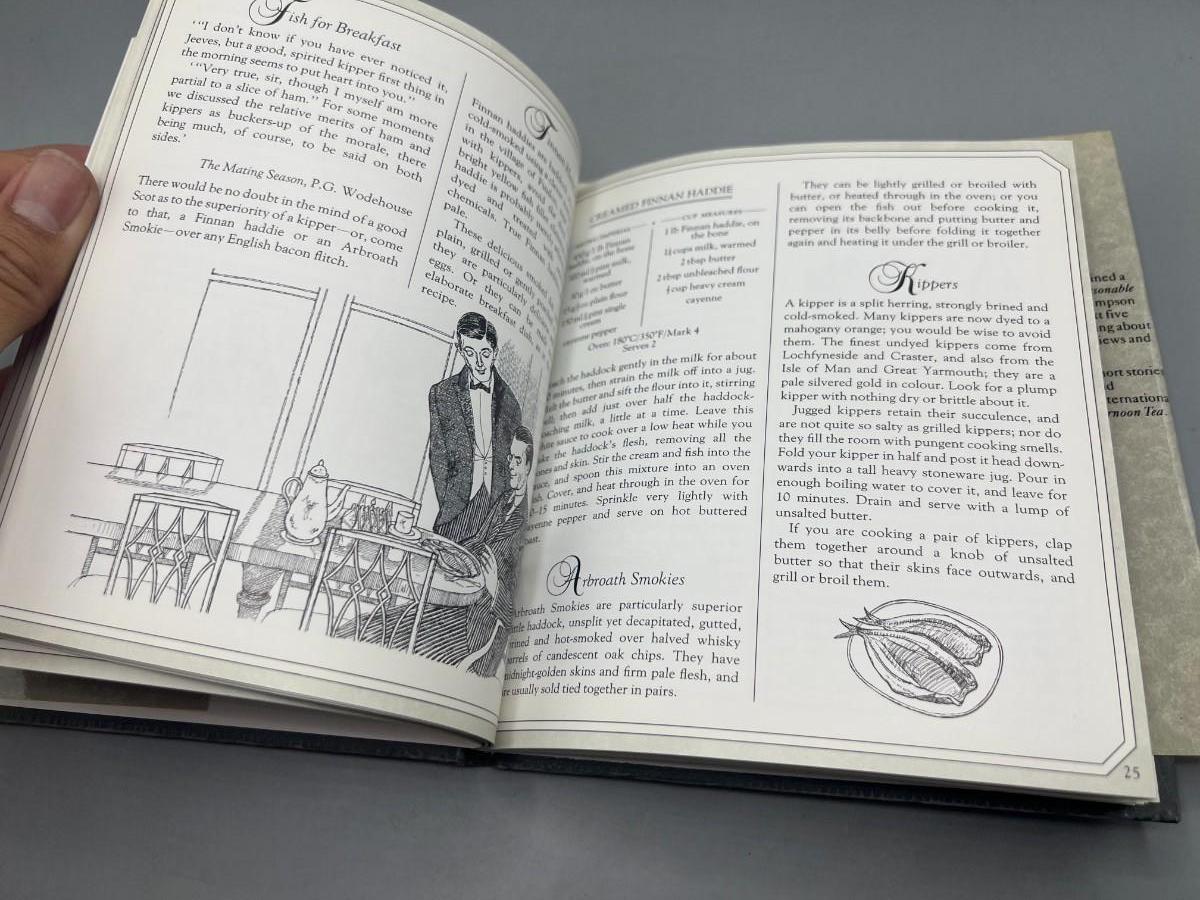 Fish for Breakfast
'"I don't know if you have ever noticed it,
Jeeves, but a good, spirited kipper first thing in
the morning seems to put heart into you."
'"Very true, sir, though I myself am more
partial to a slice of ham." For some moments
we discussed the relative merits of ham and
kippers as buckers-up of the morale, there
being much, of course, to be said on both
sides.'
The Mating Season, P.G. Wodehouse
There would be no doubt in the mind of a good
Scot as to the superiority of a kipper—or, come
to that, a Finnan haddie or an Arbroath
Smokie—over any English bacon flitch.
Finnan haddies are
cold-smoked
in the village of
with kippers, avoid the
bright yellow fish
haddie is probably
dyed and treated
chemicals. True Finnan
pale.
These delicious smoked
plain, grilled or gently
they are particularly delicious
eggs. Or they can be
elaborate breakfast dish
recipe.
CREAMED FINNAN HADDIE
CUP MEASURES
1 lb Finnan haddie, on
the bone
1¼ cups milk, warmed
2 tbsp butter
2 tbsp unbleached flour
cup heavy cream
cayenne
Finnan
haddie, on the bone
milk,
warmed
butter
plain flour
single
cream
cayenne pepper
Oven: 180°C/350°F/Mark 4
Serves 2
the haddock gently in the milk for about
minutes, then strain the milk off into a jug.
the butter and sift the flour into it, stirring
then add just over half the haddock-
poaching milk, a little at a time. Leave this
sauce to cook over a low heat while you
the haddock's flesh, removing all the
bones and skin. Stir the cream and fish into the
sauce, and spoon this mixture into an oven
dish. Cover, and heat through in the oven for
10–15 minutes. Sprinkle very lightly with
cayenne pepper and serve on hot buttered
toast.
Arbroath Smokies
Arbroath Smokies are particularly superior
little haddock, unsplit yet decapitated, gutted,
brined and hot-smoked over halved whisky
barrels of candescent oak chips. They have
midnight-golden skins and firm pale flesh, and
are usually sold tied together in pairs.
They can be lightly grilled or broiled with
butter, or heated through in the oven; or you
can open the fish out before cooking it,
removing its backbone and putting butter and
pepper in its belly before folding it together
again and heating it under the grill or broiler.
Kippers
A kipper is a split herring, strongly brined and
cold-smoked. Many kippers are now dyed to a
mahogany orange; you would be wise to avoid
them. The finest undyed kippers come from
Lochfyneside and Craster, and also from the
Isle of Man and Great Yarmouth; they are a
pale silvered gold in colour. Look for a plump
kipper with nothing dry or brittle about it.
Jugged kippers retain their succulence, and
are not quite so salty as grilled kippers; nor do
they fill the room with pungent cooking smells.
Fold your kipper in half and post it head down-
wards into a tall heavy stoneware jug. Pour in
enough boiling water to cover it, and leave for
10 minutes. Drain and serve with a lump of
unsalted butter.
If you are cooking a pair of kippers, clap
them together around a knob of unsalted
butter so that their skins face outwards, and
grill or broil them.
25
ined a
sonable
mpson
five
ng about
iews and
ort stories
d
ternationa
rnoon Tea.